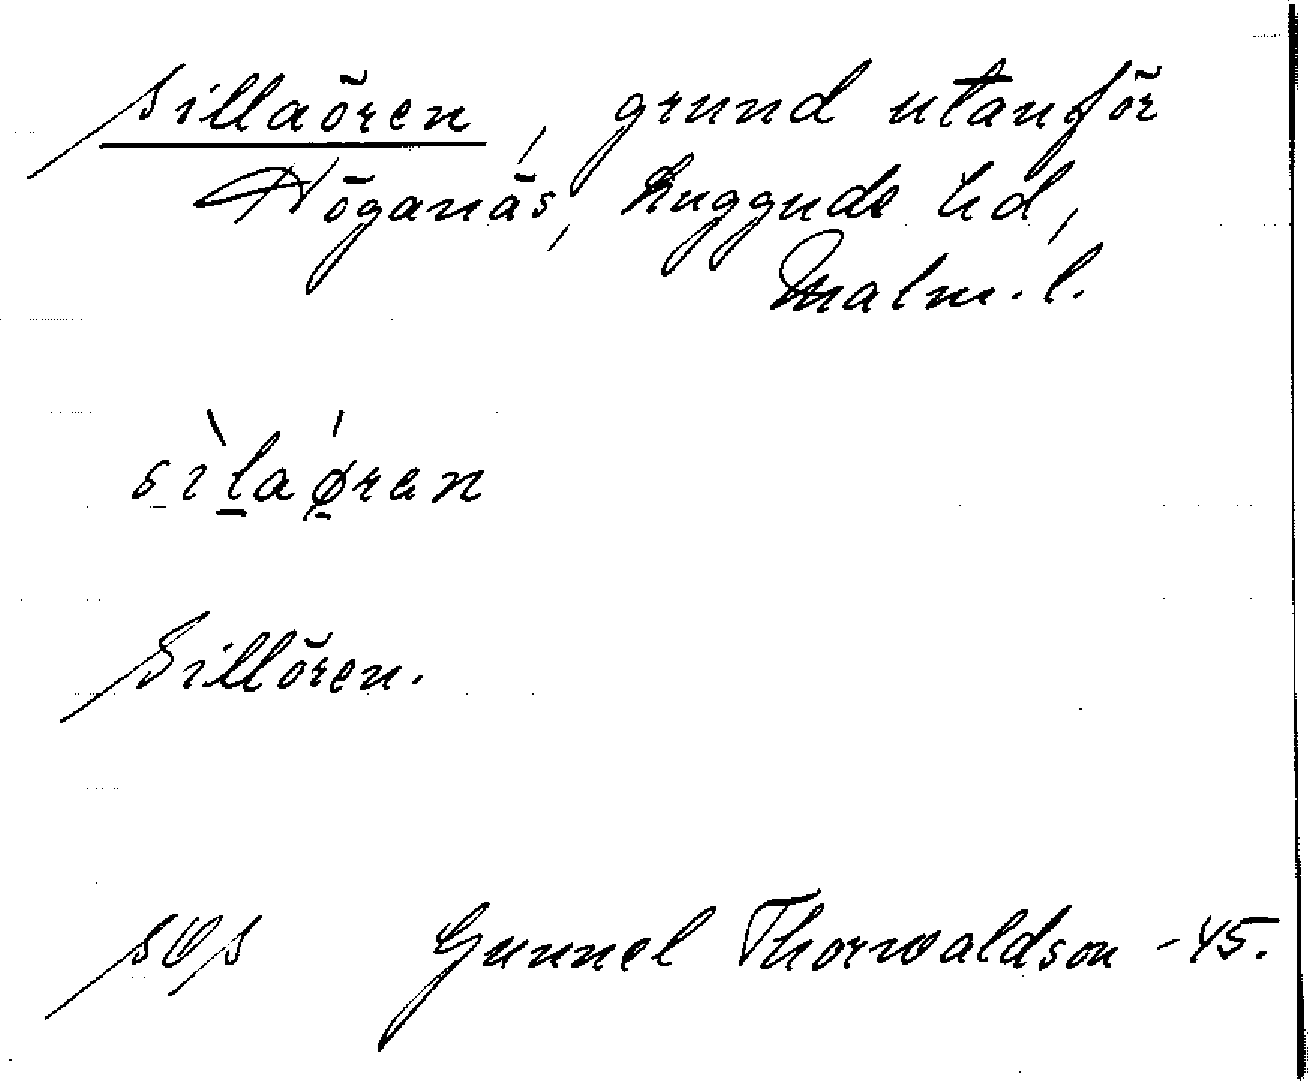 Sillaören, grund utanför
Höganäs, Luggude hd,
Malm. l.
sìlaǿren
Sillören.
Gunnel Thorwaldson -45.